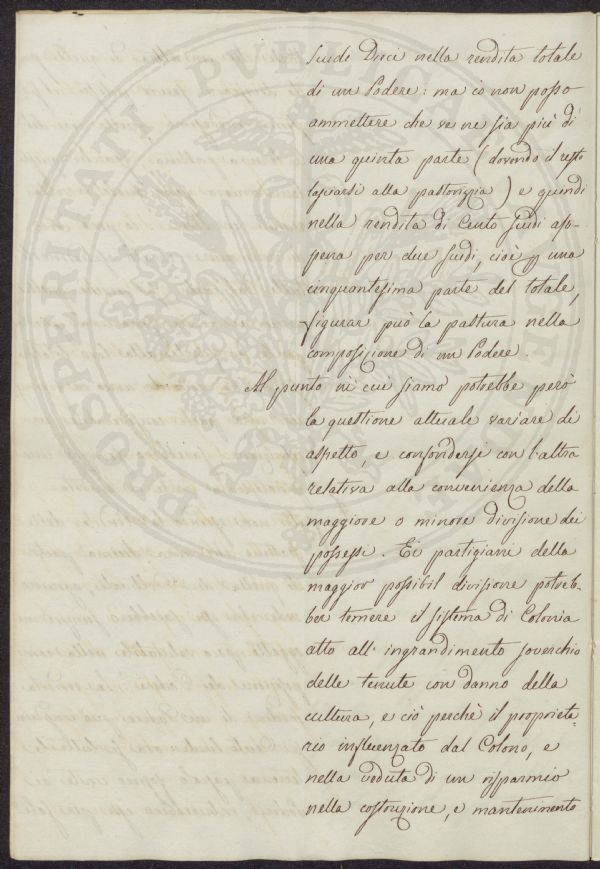 Scudi Dieci nella rendita totale
di un Podere: ma io non posso
ammettere che ve ne sia più di
una quinta parte (dovendo il resto
lasciarsi alla pastorizia) e quindi
nella rendita di Cento Scudi ap-
pena per due Scudi, cioè p una
cinquantesima parte del totale,
figurar può la pastura nella
composizione di un Podere.
Al punto in cui siamo potrebbe però
la questione attuale variare di
aspetto, e confondersi con l'altra
relativa alla convenienza della
maggiore o minore divisione dei
possessi. Ei partigiani della
maggior possibil divisione potreb-
ber temere il sistema di Colonia
atto all' ingrandimento soverchio
delle tenute con danno della
cultura, e ciò perchè il proprieta-
rio influenzato dal Colono, e
nella veduta di un risparmio
nella costruzione, e mantenimento
PROSPERITATI PUBLICAE